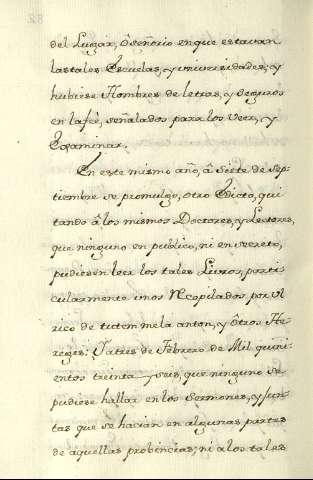 del Lugar, ô señorio en que estavan
las tales Escuelas, y universidades; y
hubiese Hombres de letras, y seguros
en la fee, señalados para los Veer, y
Examinar.
En este mismo año, â Siete de Sep-
tiembre se promulgo, otro Edicto, qui
tando â los mismos Doctores, y Lectores,
que ninguno en publico, ni en secreto,
pudiesen leer los tales Livros, parti-
cularmente unos Recopilados, por Ul
rico de tutem mela anton, y ôtros He-
reges: Y a tres de Febrero de Mil quini-
entos treinta y seis, que ninguno se
pudiese hallar en los Sermones, y Jun-
tas que se hacian en algunas partes
de aquellas probincias; ni a los tales